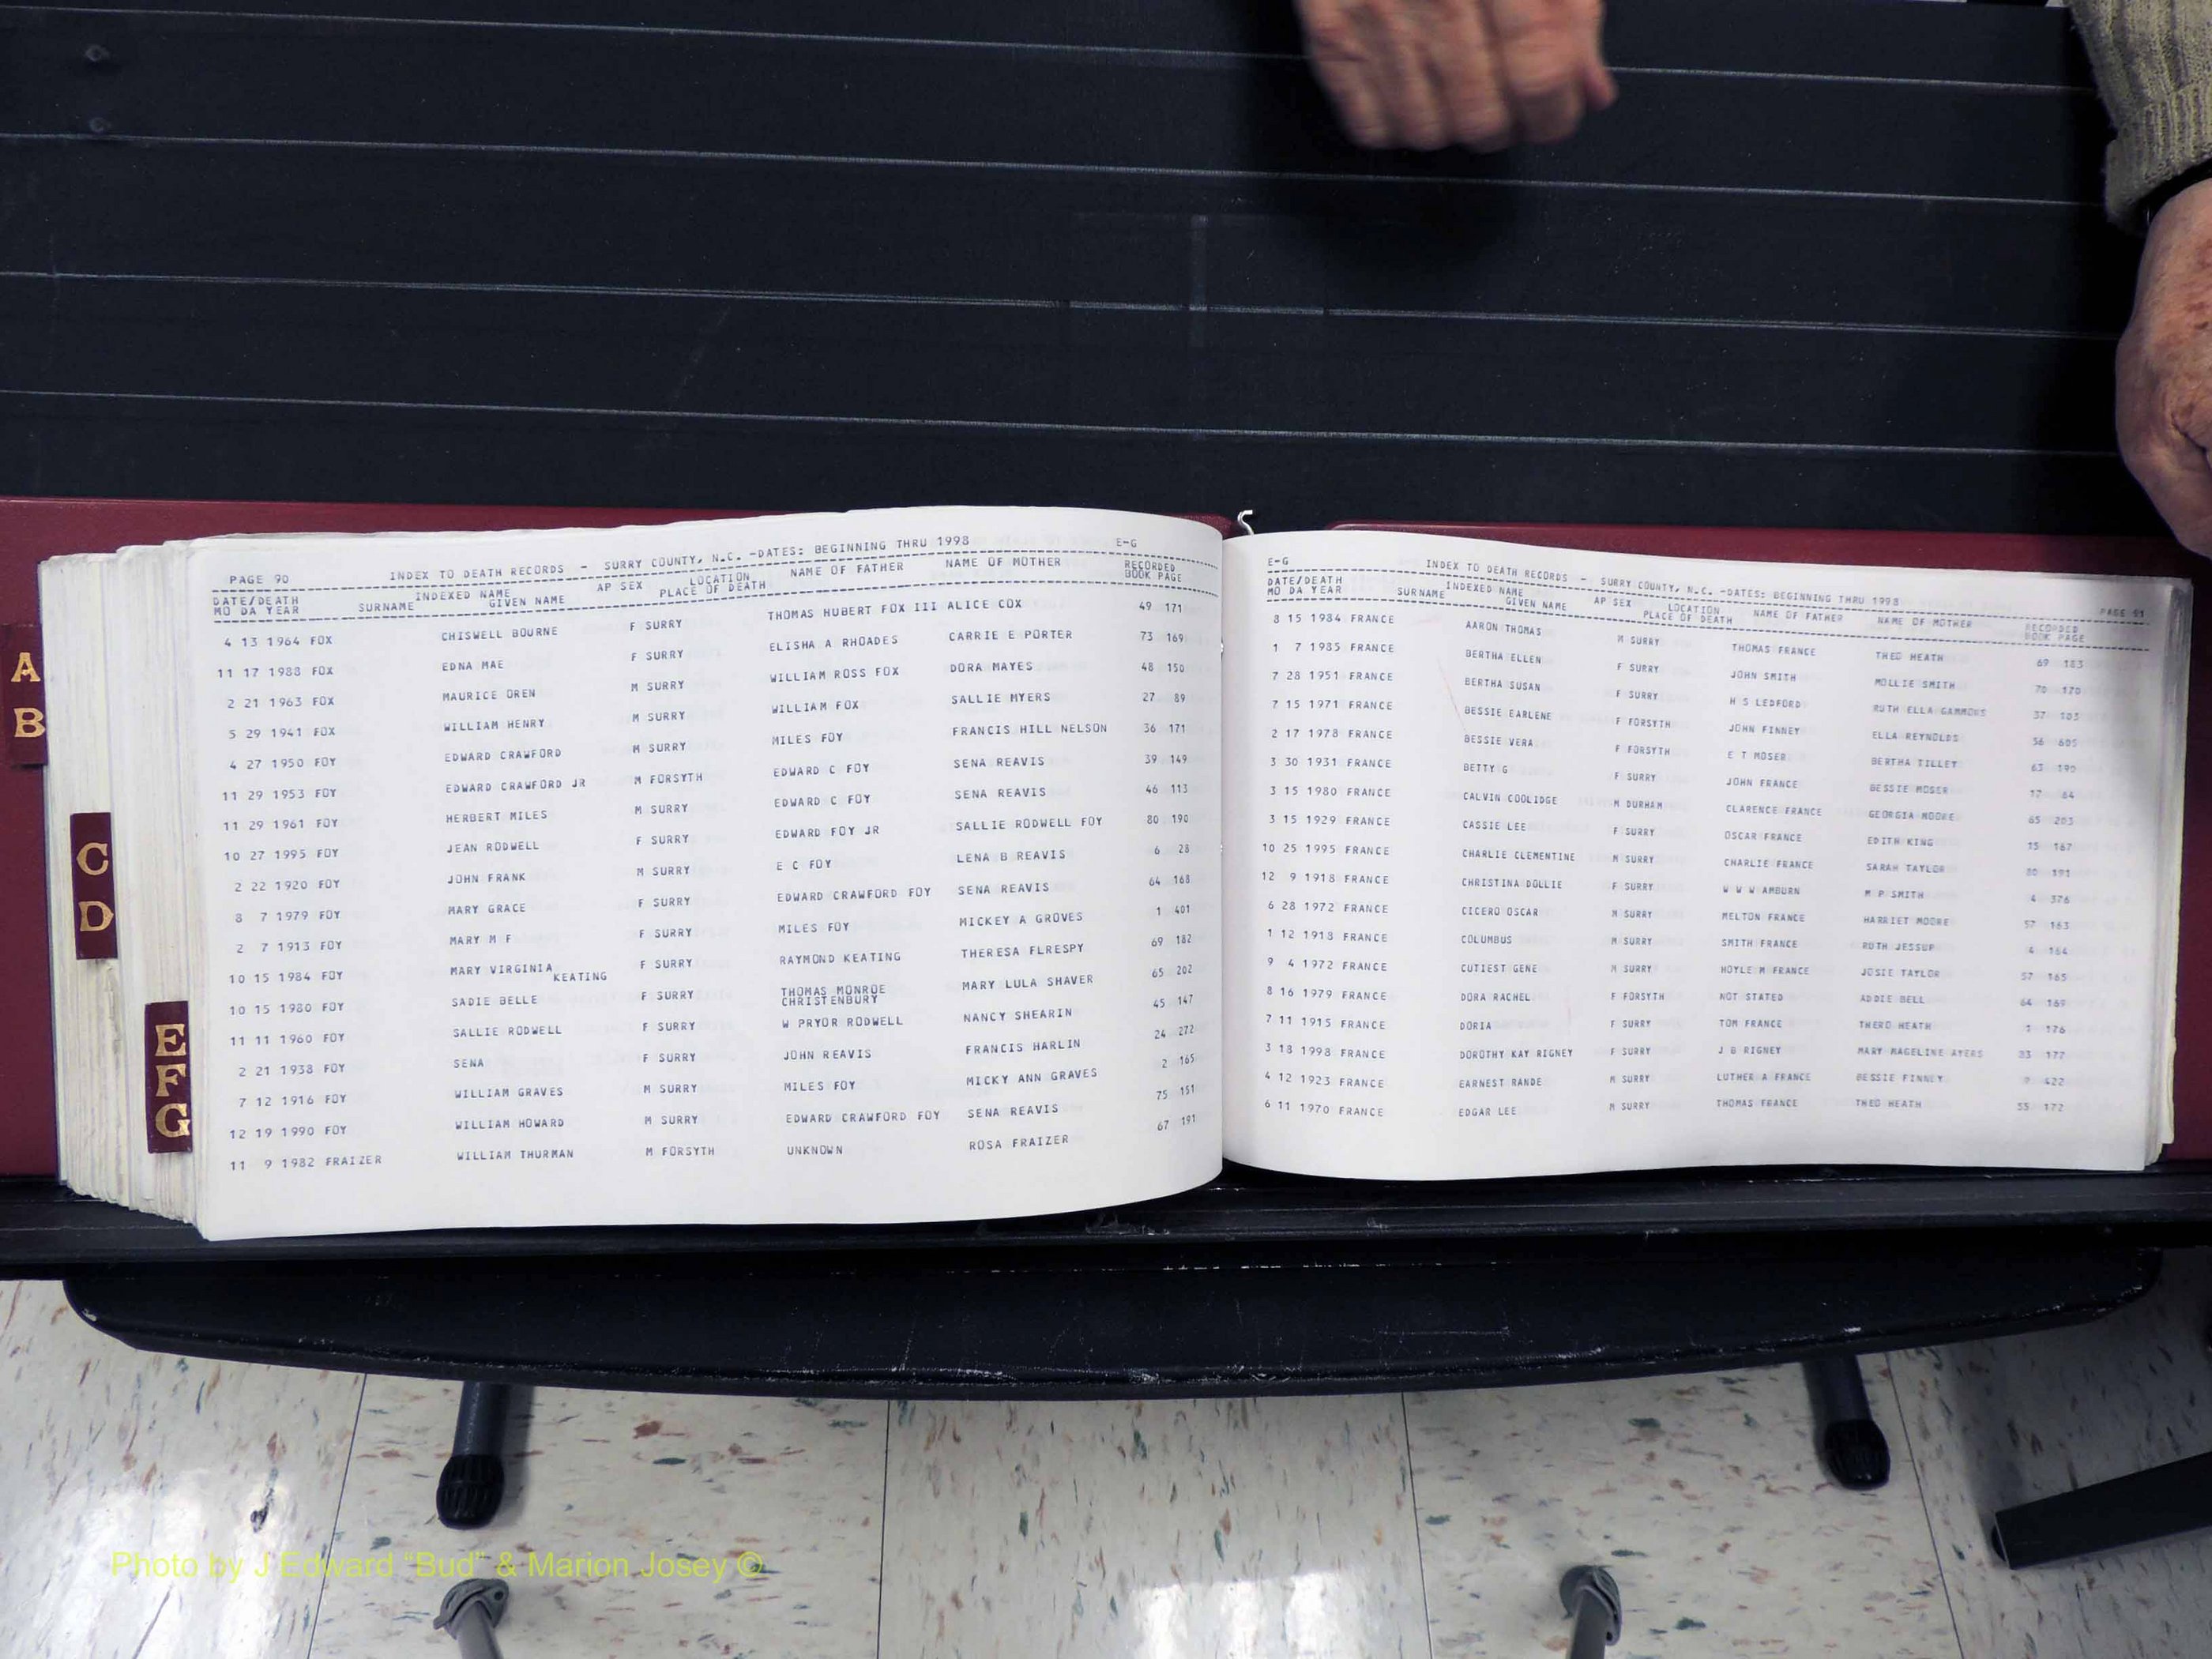 A
B
C
D
E
F
G
PAGE 90 INDEX TO DEATH RECORDS - SURRY COUNTY, N.C. -DATES: BEGINNING THRU 1998 E-G
DATE/DEATH INDEXED NAME AP SEX LOCATION NAME OF FATHER NAME OF MOTHER RECORDED
MO DA YEAR SURNAME GIVEN NAME PLACE OF DEATH BOOK PAGE
4 13 1964 FOX CHISWELL BOURNE F SURRY THOMAS HUBERT FOX III ALICE COX 49 171
11 17 1988 FOX EDNA MAE F SURRY ELISHA A RHOADES CARRIE E PORTER 73 169
2 21 1963 FOX MAURICE OREN M SURRY WILLIAM ROSS FOX DORA MAYES 48 150
5 29 1941 FOX WILLIAM HENRY M SURRY WILLIAM FOX SALLIE MYERS 27 89
4 27 1950 FOY EDWARD CRAWFORD M SURRY MILES FOY FRANCIS HILL NELSON 36 171
11 29 1953 FOY EDWARD CRAWFORD JR M FORSYTH EDWARD C FOY SENA REAVIS 39 149
11 29 1961 FOY HERBERT MILES M SURRY EDWARD C FOY SENA REAVIS 46 113
10 27 1995 FOY JEAN RODWELL F SURRY EDWARD FOY JR SALLIE RODWELL FOY 80 190
2 22 1920 FOY JOHN FRANK M SURRY E C FOY LENA B REAVIS 6 28
8 7 1979 FOY MARY GRACE F SURRY EDWARD CRAWFORD FOY SENA REAVIS 64 168
2 7 1913 FOY MARY M F F SURRY MILES FOY MICKEY A GROVES 1 401
10 15 1984 FOY MARY VIRGINIA KEATING F SURRY RAYMOND KEATING THERESA FLRESPY 69 182
10 15 1980 FOY SADIE BELLE F SURRY THOMAS MONROE CHRISTENBURY MARY LULA SHAVER 65 202
11 11 1960 FOY SALLIE RODWELL F SURRY W PRYOR RODWELL NANCY SHEARIN 45 147
2 21 1938 FOY SENA F SURRY JOHN REAVIS FRANCIS HARLIN 24 272
7 12 1916 FOY WILLIAM GRAVES M SURRY MILES FOY MICKY ANN GRAVES 2 165
12 19 1990 FOY WILLIAM HOWARD M SURRY EDWARD CRAWFORD FOY SENA REAVIS 75 151
11 9 1982 FRAIZER WILLIAM THURMAN M FORSYTH UNKNOWN ROSA FRAIZER 67 191
E-G INDEX TO DEATH RECORDS - SURRY COUNTY, N.C. -DATES: BEGINNING THRU 1998 PAGE 91
DATE/DEATH INDEXED NAME AP SEX LOCATION NAME OF FATHER NAME OF MOTHER RECORDED
MO DA YEAR SURNAME GIVEN NAME PLACE OF DEATH BOOK PAGE
8 15 1984 FRANCE AARON THOMAS M SURRY THOMAS FRANCE THEO HEATH 69 183
1 7 1985 FRANCE BERTHA ELLEN F SURRY JOHN SMITH MOLLIE SMITH 70 170
7 28 1951 FRANCE BERTHA SUSAN F SURRY H S LEDFORD RUTH ELLA GAMMONS 37 103
7 15 1971 FRANCE BESSIE EARLENE F FORSYTH JOHN FINNEY ELLA REYNOLDS 56 605
2 17 1978 FRANCE BESSIE VERA F FORSYTH E T MOSER BERTHA TILLEY 63 190
3 30 1931 FRANCE BETTY G F SURRY JOHN FRANCE BESSIE MOSER 17 64
3 15 1980 FRANCE CALVIN COOLIDGE M DURHAM CLARENCE FRANCE GEORGIA MOORE 65 203
3 15 1929 FRANCE CASSIE LEE F SURRY OSCAR FRANCE EDITH KING 15 167
10 25 1995 FRANCE CHARLIE CLEMENTINE M SURRY CHARLIE FRANCE SARAH TAYLOR 80 191
12 9 1918 FRANCE CHRISTINA DOLLIE F SURRY W W W AMBURN M P SMITH 4 376
6 28 1972 FRANCE CICERO OSCAR M SURRY MELTON FRANCE HARRIET MOORE 57 163
1 12 1918 FRANCE COLUMBUS M SURRY SMITH FRANCE RUTH JESSUP 4 164
9 4 1972 FRANCE CUTIEST GENE M SURRY HOYLE M FRANCE JOSIE TAYLOR 57 165
8 16 1979 FRANCE DORA RACHEL F FORSYTH NOT STATED ADDIE BELL 64 169
7 11 1915 FRANCE DORIA F SURRY TOM FRANCE THERO HEATH 1 176
3 18 1998 FRANCE DOROTHY KAY RIGNEY F SURRY J B RIGNEY MARY MAGELINE AYERS 83 177
4 12 1923 FRANCE EARNEST RANDE M SURRY LUTHER A FRANCE BESSIE FINNEY 9 422
6 11 1970 FRANCE EDGAR LEE M SURRY THOMAS FRANCE THEO HEATH 55 172
Photo by J Edward "Bud" & Marion Josey ©